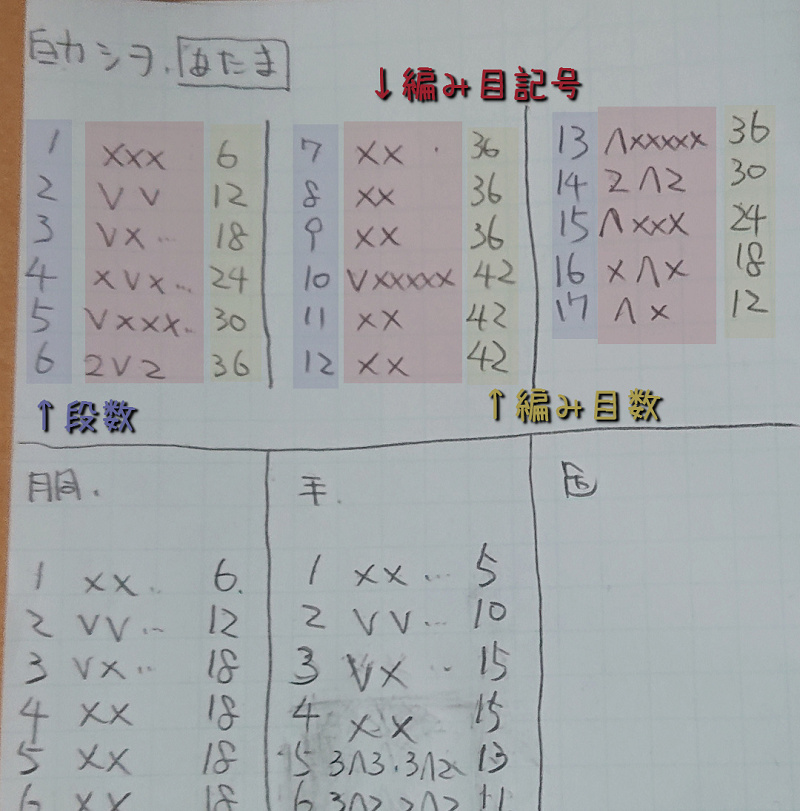 白カシヲ. あたま
↓編み目記号
1 xxx 6
2 VV 12
3 Vx… 18
4 xVx… 24
5 Vxxx… 30
6 2V2 36
7 xx 36
8 xx 36
9 xx 36
10 Vxxxxx 42
11 xx 42
12 xx 42
13 Λxxxxx 36
14 2Λ2 30
15 Λxxx 24
16 xΛx 18
17 Λx 12
↑段数
↑編み目数
胴.
1 xx… 6.
2 VV… 12
3 Vx… 18
4 xx 18
5 xx 18
6 xx 18
手.
1 xx… 5
2 VV… 10
3 Vx… 15
4 xx 15
5 3Λ3.3Λ2x 13
6 3Λ2.2Λ2 11